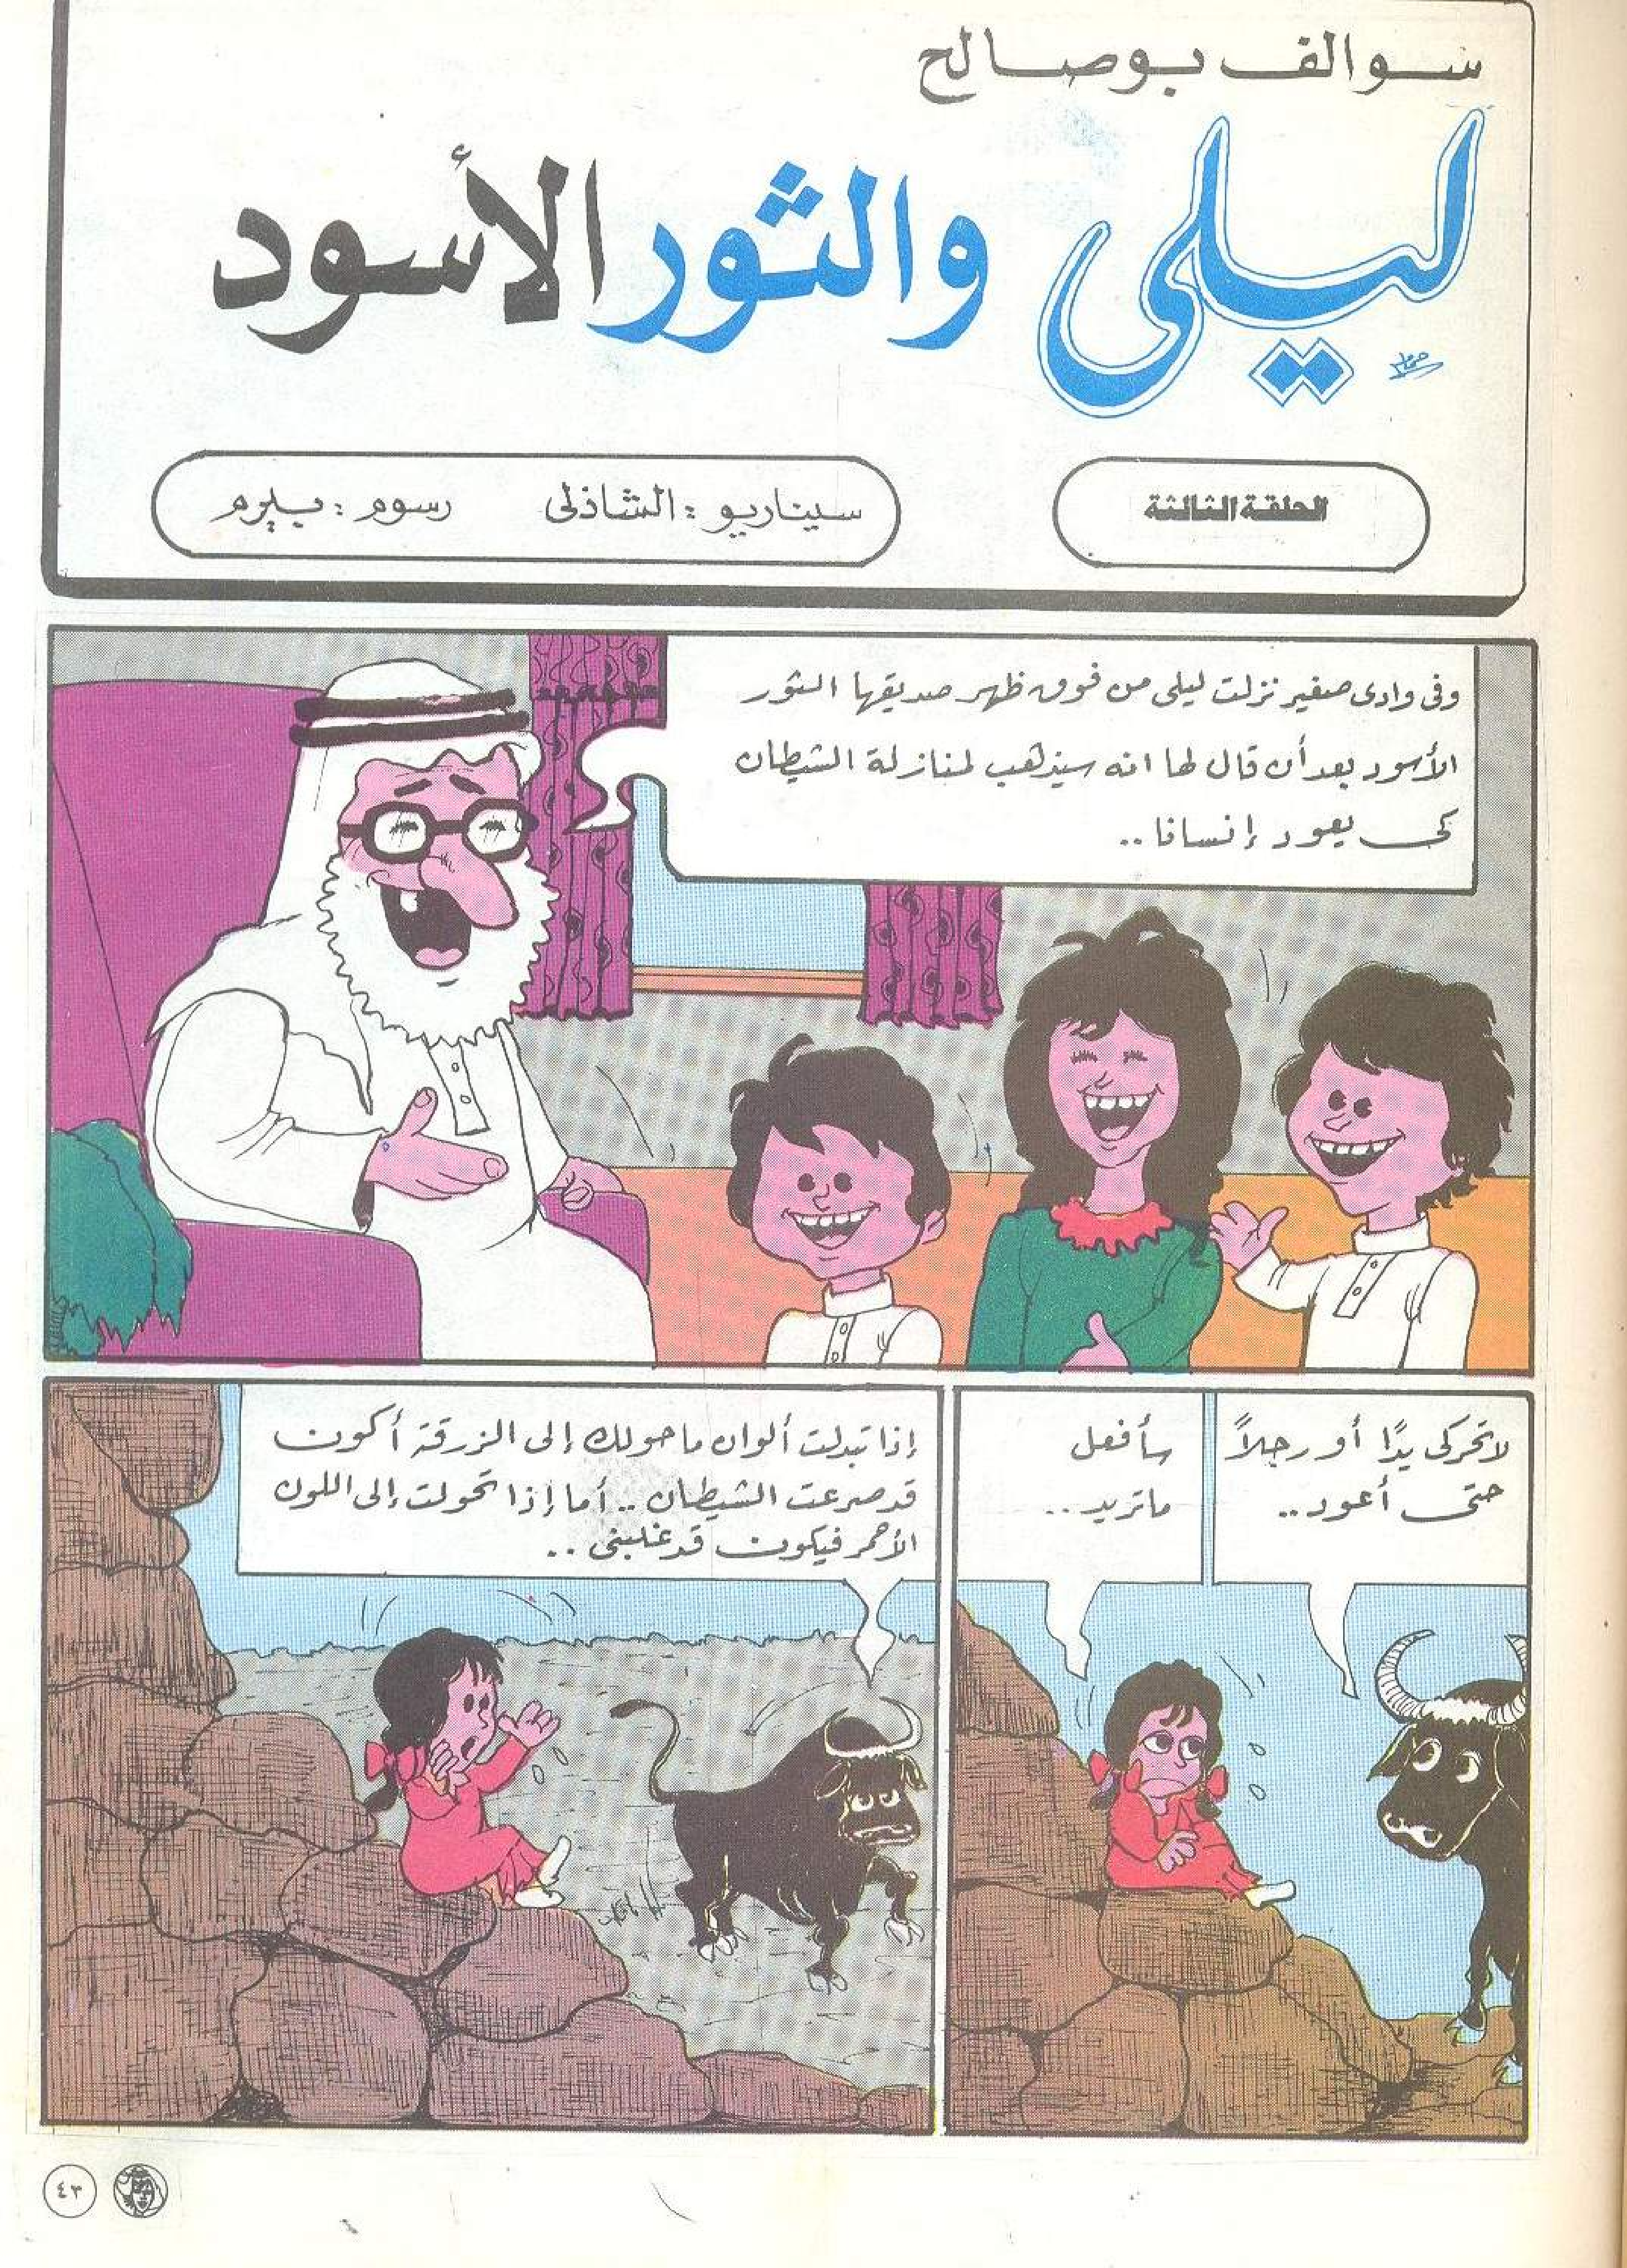 سوالف بوصالح
ليلى والثور الأسود
الحلقة الثالثة
سيناريو : الشاذلى رسوم : بيرم
وفى وادى صغير نزلت ليلى من فوق ظهر صديقها الثور
الأسود بعد أن قال لها انه سيذهب لمنازلة الشيطان
كى يعود إنسانا ..
لا تحركى يدًا أو رجلاً
حتى أعود ..
سأفعل
ماتريد ..
إذا تبدلت ألوان ماحولك إلى الزرقة أكون
قد صرعت الشيطان .. أما إذا تحولت إلى اللون
الأحمر فيكون قد غلبنى ..
٤٣